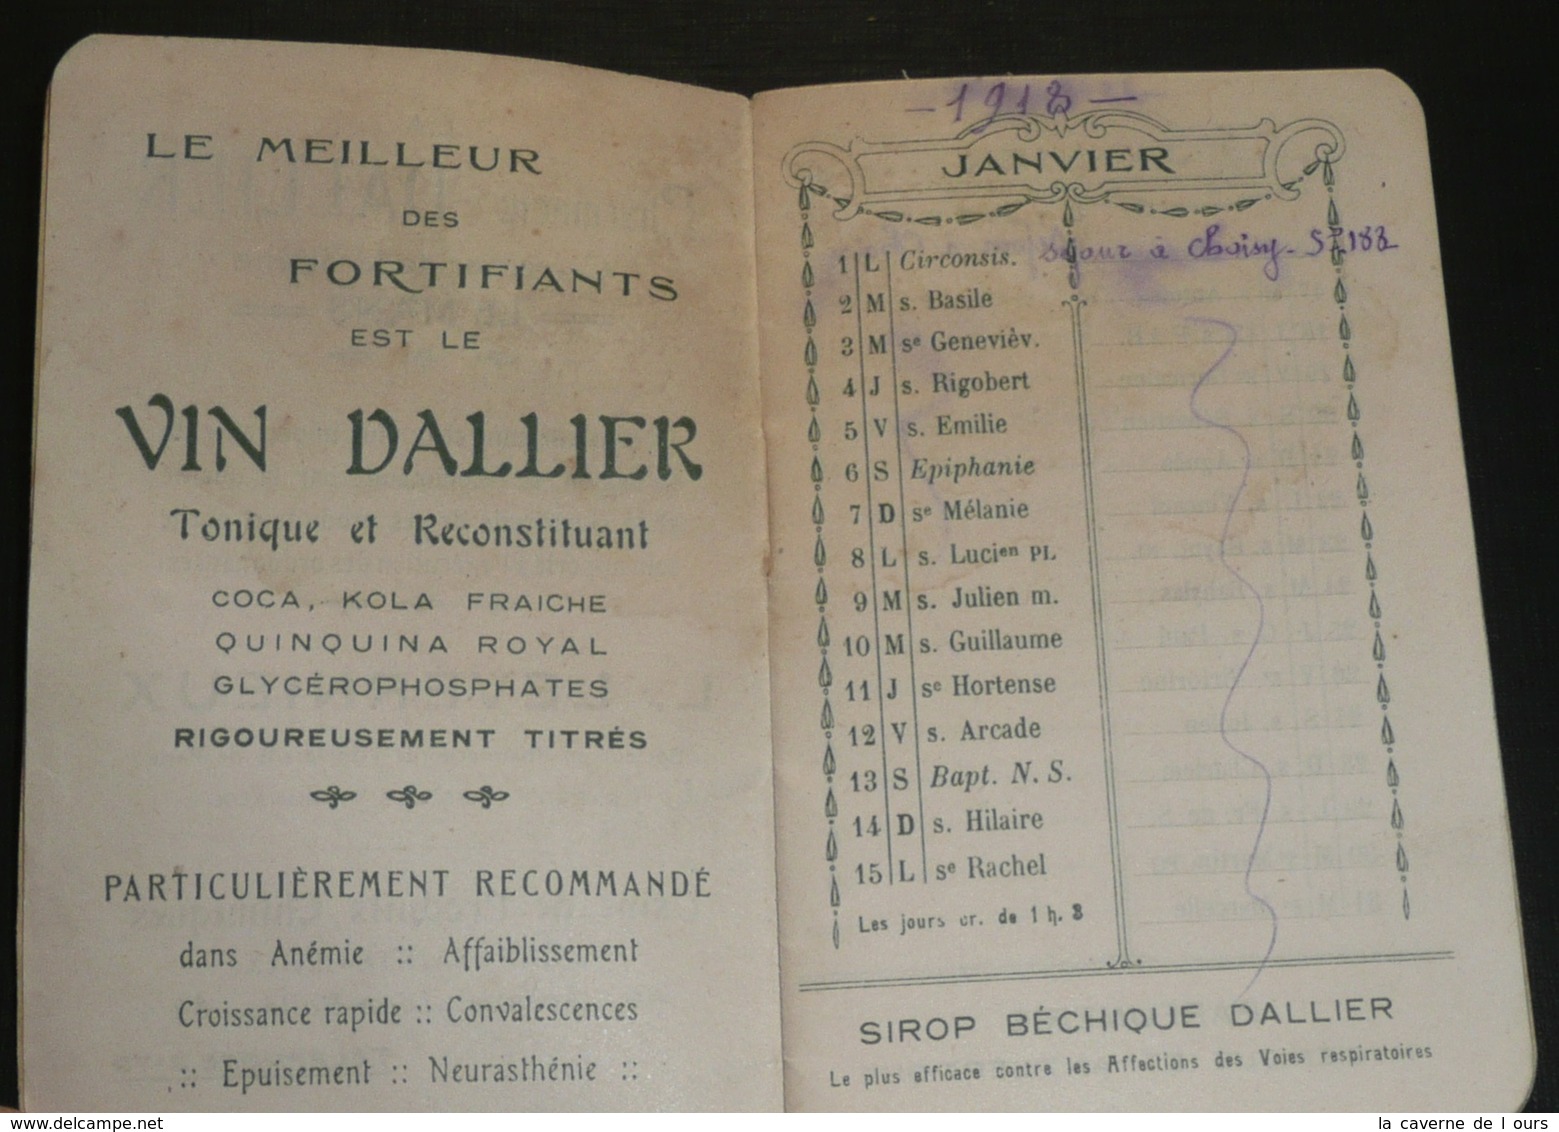 LE MEILLEUR
DES
FORTIFIANTS
EST LE
VIN DALLIER
Tonique et Reconstituant
COCA, KOLA FRAICHE
QUINQUINA ROYAL
GLYCÉROPHOSPHATES
RIGOUREUSEMENT TITRÉS
PARTICULIÈREMENT RECOMMANDÉ
dans Anémie :: Affaiblissement
Croissance rapide :: Convalescences
:: Epuisement :: Neurasthénie ::
- 1918 -
JANVIER
1 L Circonsis. séjour à Choisy.
2 M s. Basile
3 M se Genevièv.
4 J s. Rigobert
5 V s. Emilie
6 S Epiphanie
7 D se Mélanie
8 L s. Lucien PL
9 M s. Julien m.
10 M s. Guillaume
11 J se Hortense
12 V s. Arcade
13 S Bapt. N. S.
14 D s. Hilaire
15 L se Rachel
Les jours cr. de 1 h. 3
SIROP BÉCHIQUE DALLIER
Le plus efficace contre les Affections des Voies respiratoires
la caverne de l ours